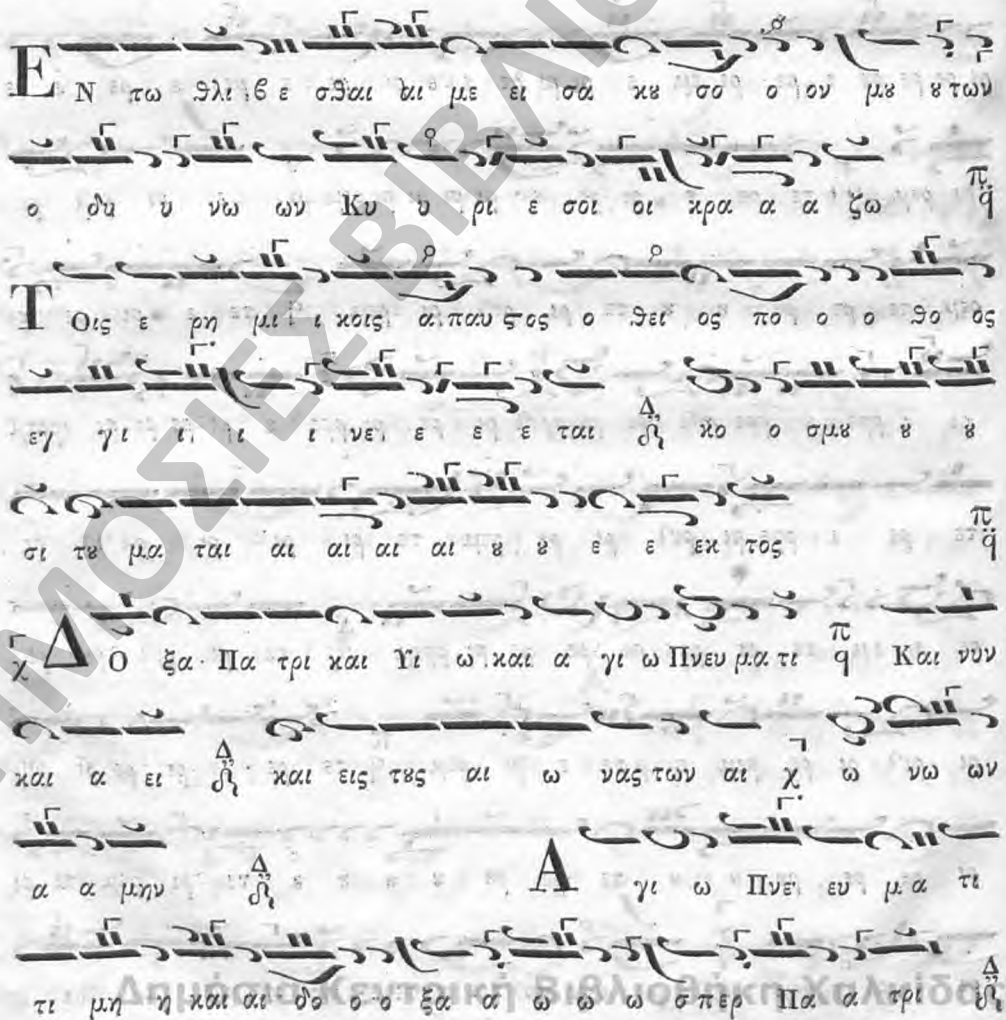 ΕΝ τω θλι β ε σθαι αι με ει σα κȣ σο ο ον μȣ ȣ των
ο δυ υ νω ων Κυ υ ρι ε σοι οι κρα α α ζω π q
Τ Οις ε ρη μι ι κοις α παυ ϛος ο θει ος πο ο ο θο ος
εγ γι ι ι ι νε ε ε ε ται Δ κο ο σμȣ ȣ ȣ
σι τȣ μα ται αι αι αι αι ȣ ȣ ε ε εκ τος π q
χ Δ Ο ξα Πα τρι και Υι ω και α γι ω Πνευ μα τι π q Και νῦν
και α ει Δ και εις τȣς αι ω νας των αι χ ω νω ων
α α μην Δ Α γι ω Πνε ευ μ α τι
τι μη η και αι δο ο ο ξα α ω ω ω σπερ Πα α τρι Δ
ΗΜΟΣΙΕΣ ΒΙΒΛΙΟ
Δημόσια Κεντρική Βιβλιοθήκη Χαλκίδα